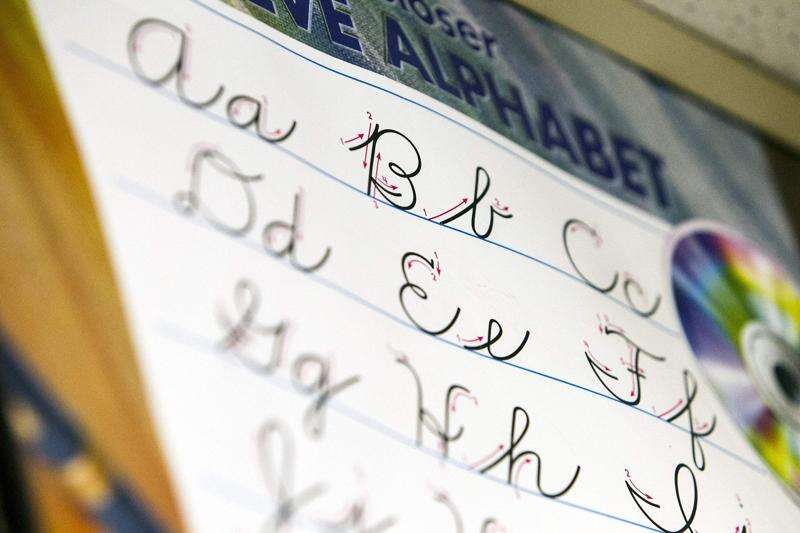 loser
VE ALPHABET
Aa Bb Cc
Dd Ee Ff
Gg Hh I